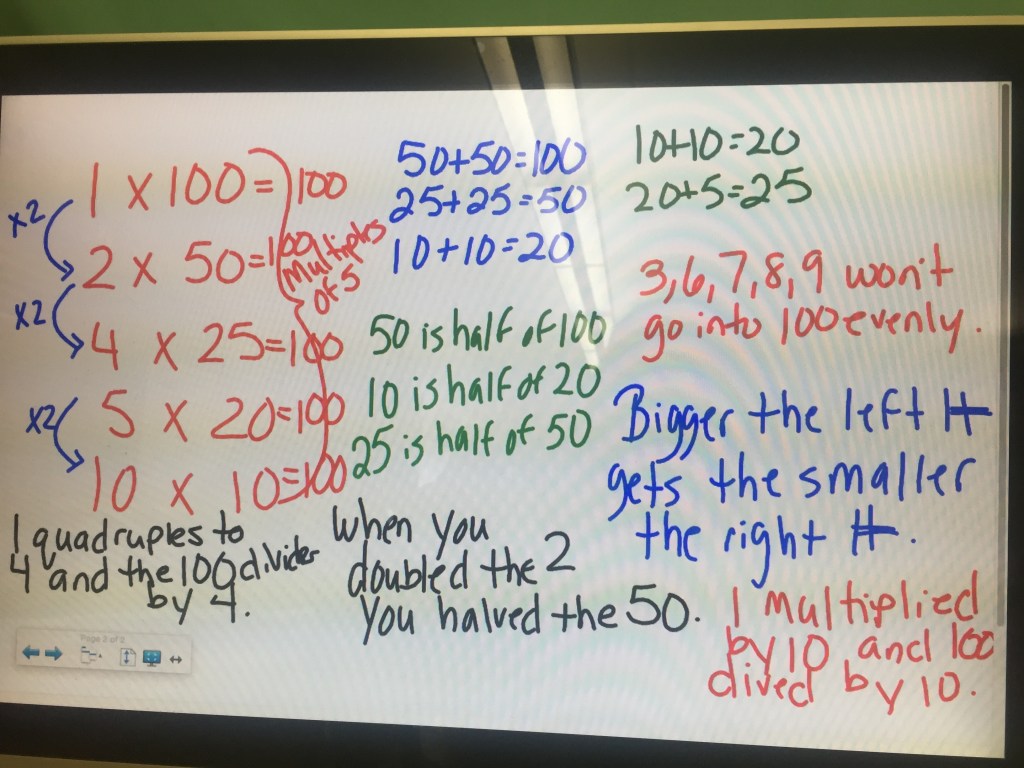 1 x 100 = 100
x2
2 x 50=100
x2
4 x 25=100
5 x 20=100
x2
10 x 10=100
Multiples
of 5
50+50=100
25+25=50
10+10=20
10+10=20
20+5=25
50 is half of 100
10 is half of 20
25 is half of 50
3,6,7,8,9 won't
go into 100 evenly.
Bigger the left #
gets the smaller
the right #.
1 quadruples to
4 and the 100 divides
by 4.
When you
doubled the 2
you halved the 50.
1 multiplied
by 10 and 100
dived by 10.
Page 2 of 2